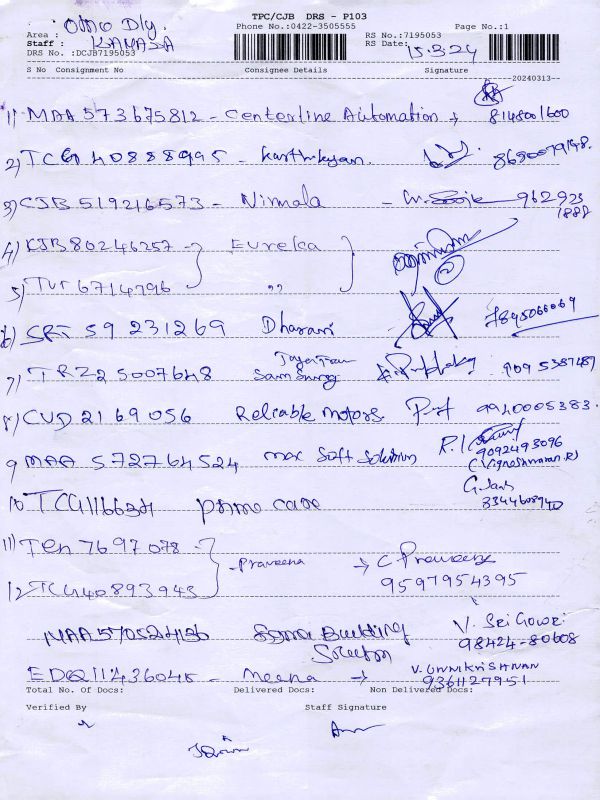 TPC/CJB DRS - P103
Area : Otno Dly.
Phone No.:0422-3505555
Page No.:1
Staff : KANAGA
RS No.:7195053
DRS No. :DCJB7195053
RS Date: 15.3.24
S No Consignment No Consignee Details Signature
20240313
1) MAA 573675812 - Centerline Automation → 8148001600
2) TCG 40888995 - Karthikeyan. 8680079148
3) CJB 519216573 - Nirmala - 962923
1888
4) KJB 80246257 - Eureka
5) TUT 6714796 "
6) SRT 59 231269 Dharani 7845066069
7) TRZ2 5007648 Samsung 9095387487
8) CUD 21 69 056 Reliable Motors 9940005383.
9 MAA 572764524 Max Soft Solution 9092493096
C. Vigneshwaran
10 TCG1166321 Prime care 3344608940
11) TEN 7697 078 -
- Praveena → C. Praveena
12) TCG40893943 9597954395
MAA570524136 Building V. Sri Gowri
Solution 98424-80608
EDQ11436045 - Meena → V. UNNIKRISHNAN
9361127951
Total No. Of Docs: Delivered Docs: Non Delivered Docs:
Verified By Staff Signature